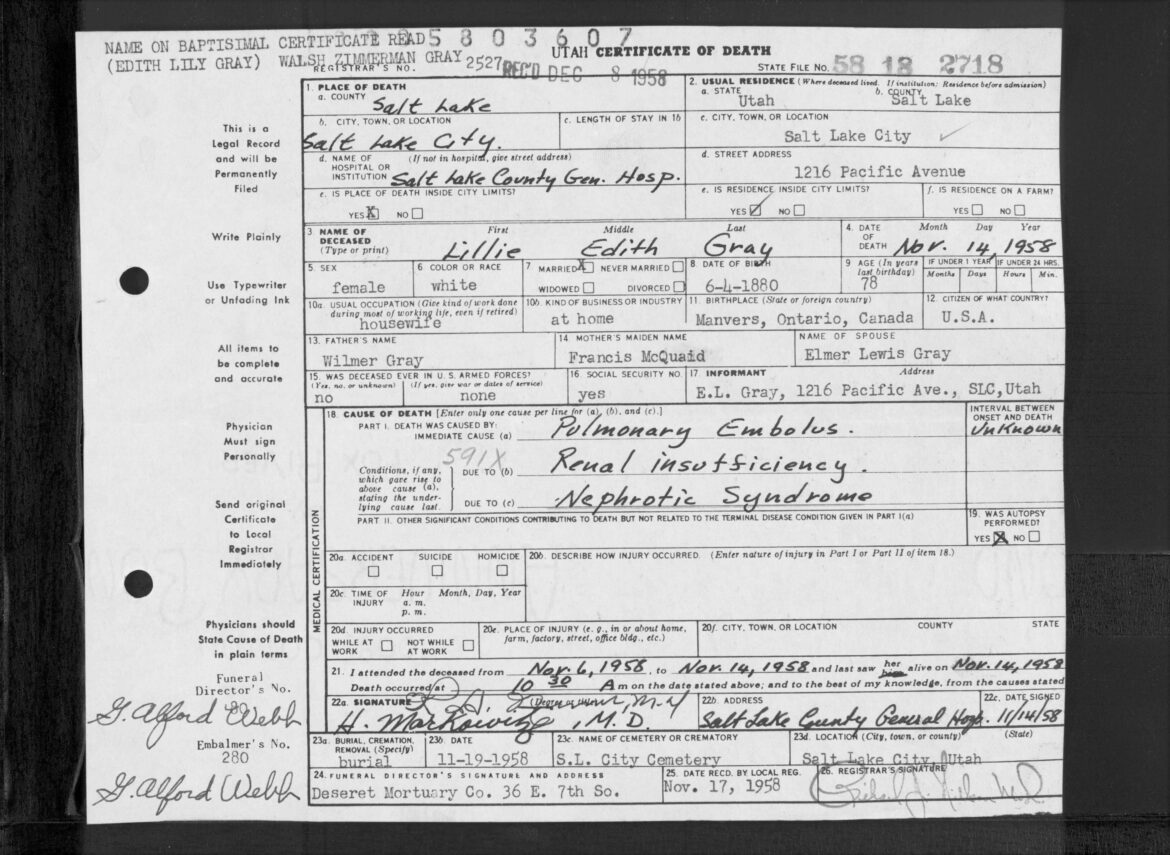 NAME ON BAPTISIMAL CERTIFICATE READ 5803607
(EDITH LILY GRAY) WALSH ZIMMERMAN GRAY
UTAH CERTIFICATE OF DEATH
REGISTRAR'S NO. 2527 REC'D DEC 8 1958 STATE FILE NO. 58 18 2718
This is a
Legal Record
and will be
Permanently
Filed
Write Plainly
Use Typewriter
or Unfading Ink
All items to
be complete
and accurate
Physician
Must sign
Personally
Send original
Certificate
to Local
Registrar
Immediately
Physicians should
State Cause of Death
in plain terms
Funeral
Director's No.
G. Alford Webb
Embalmer's No.
280
G. Alford Webb
1. PLACE OF DEATH
a. COUNTY Salt Lake
2. USUAL RESIDENCE (Where deceased lived. If institution: Residence before admission)
a. STATE Utah b. COUNTY Salt Lake
b. CITY, TOWN, OR LOCATION Salt Lake City.
c. LENGTH OF STAY IN 1b
c. CITY, TOWN, OR LOCATION
Salt Lake City
d. NAME OF HOSPITAL OR INSTITUTION (If not in hospital, give street address)
Salt Lake County Gen. Hosp.
d. STREET ADDRESS
1216 Pacific Avenue
e. IS PLACE OF DEATH INSIDE CITY LIMITS?
YES X NO
e. IS RESIDENCE INSIDE CITY LIMITS?
YES NO
f. IS RESIDENCE ON A FARM?
YES NO
3 NAME OF DECEASED (Type or print)
First Middle Last
Lillie Edith Gray
4. DATE OF DEATH Month Day Year
Nov. 14, 1958
5. SEX
female
6 COLOR OR RACE
white
7 MARRIED X NEVER MARRIED
WIDOWED DIVORCED
8 DATE OF BIRTH
6-4-1880
9 AGE (In years last birthday)
78
IF UNDER 1 YEAR
Months Days
IF UNDER 24 HRS.
Hours Min.
10a. USUAL OCCUPATION (Give kind of work done during most of working life, even if retired)
housewife
10b. KIND OF BUSINESS OR INDUSTRY
at home
11. BIRTHPLACE (State or foreign country)
Manvers, Ontario, Canada
12. CITIZEN OF WHAT COUNTRY?
U.S.A.
13. FATHER'S NAME
Wilmer Gray
14. MOTHER'S MAIDEN NAME
Francis McQuaid
NAME OF SPOUSE
Elmer Lewis Gray
15. WAS DECEASED EVER IN U. S. ARMED FORCES?
(Yes, no, or unknown) (If yes, give war or dates of service)
no none
16. SOCIAL SECURITY NO.
yes
17 INFORMANT Address
E.L. Gray, 1216 Pacific Ave., SLC,Utah
MEDICAL CERTIFICATION
18. CAUSE OF DEATH [Enter only one cause per line for (a), (b), and (c).]
INTERVAL BETWEEN ONSET AND DEATH
PART I. DEATH WAS CAUSED BY:
IMMEDIATE CAUSE (a) Pulmonary Embolus. Unknown
591X
Conditions, if any, which gave rise to above cause (a), stating the underlying cause last.
DUE TO (b) Renal insufficiency.
DUE TO (c) Nephrotic Syndrome
PART II. OTHER SIGNIFICANT CONDITIONS CONTRIBUTING TO DEATH BUT NOT RELATED TO THE TERMINAL DISEASE CONDITION GIVEN IN PART I(a)
19. WAS AUTOPSY PERFORMED?
YES X NO
20a. ACCIDENT SUICIDE HOMICIDE
20b. DESCRIBE HOW INJURY OCCURRED. (Enter nature of injury in Part I or Part II of item 18.)
20c. TIME OF INJURY Hour Month, Day, Year
a. m.
p. m.
20d. INJURY OCCURRED
WHILE AT WORK NOT WHILE AT WORK
20e. PLACE OF INJURY (e. g., in or about home, farm, factory, street, office bldg., etc.)
20f. CITY, TOWN, OR LOCATION COUNTY STATE
21. I attended the deceased from Nov. 6, 1958, to Nov. 14, 1958 and last saw her him alive on Nov. 14, 1958
Death occurred at 10 30 A m on the date stated above; and to the best of my knowledge, from the causes stated
22a. SIGNATURE (Degree or title)
H. Markowitz, M.D.
22b. ADDRESS
Salt Lake County General Hosp.
22c. DATE SIGNED
11/14/58
23a. BURIAL, CREMATION, REMOVAL (Specify)
burial
23b. DATE
11-19-1958
23c. NAME OF CEMETERY OR CREMATORY
S.L. City Cemetery
23d. LOCATION (City, town, or county) (State)
Salt Lake City, Utah
24. FUNERAL DIRECTOR'S SIGNATURE AND ADDRESS
Deseret Mortuary Co. 36 E. 7th So.
25. DATE RECD. BY LOCAL REG.
Nov. 17, 1958
26. REGISTRAR'S SIGNATURE